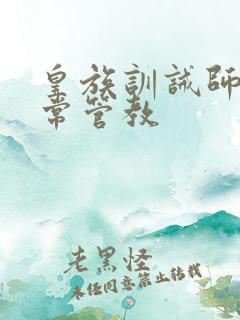 皇族訓誡師
常管教
老黑怪
未经同意禁止转载